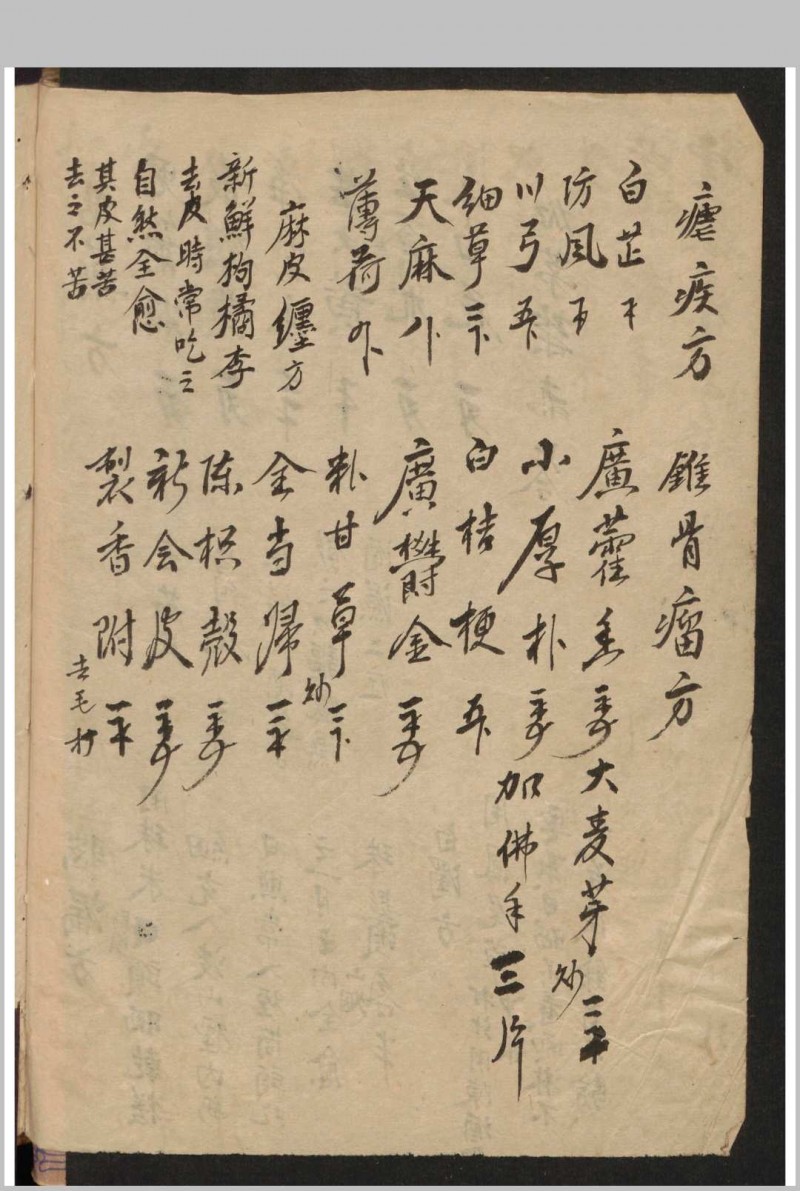 瘧疾方
白芷
防風
川弓
細草
天麻
薄荷
麻皮纏方
新鮮枸橘李
去皮時常吃之
自然全愈
其皮甚苦
去之不苦
錐骨瘤方
廣藿香
小厚朴
白桔梗
廣欝金
粉甘草炒
全当歸
陈枳殼
新会皮
製香附
去毛炒
大麦芽炒
加佛手三片